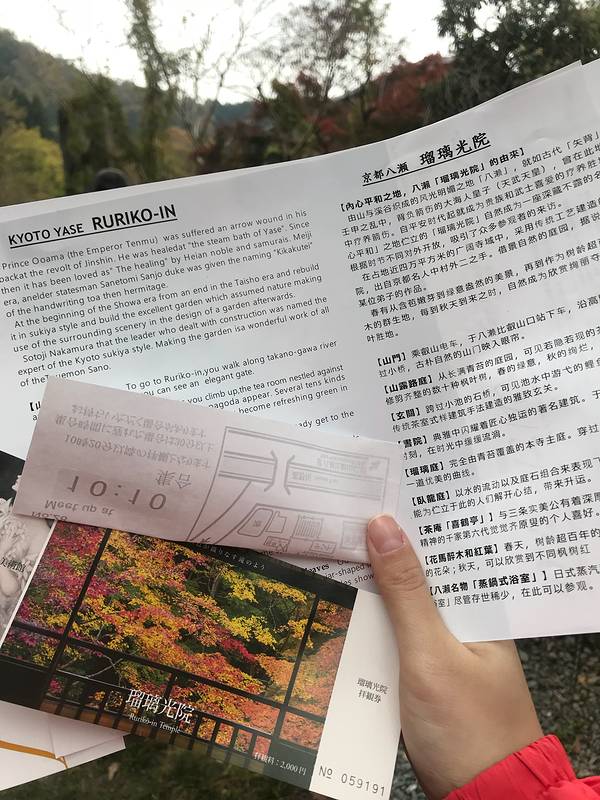 KYOTO YASE RURIKO-IN
Prince Ooama (the Emperor Tenmu) was suffered an arrow wound in his
packat the revolt of Jinshin. He was healedat "the steam bath of Yase". Since
then it has been loved as" The healing" by Heian noble and samurais. Meiji
era, anelder statesman Sanetomi Sanjo duke was given the naming "Kikakutei"
of the handwriting toa then hermitage.
At the beginning of the Showa era from an end in the Taisho era and rebuild
it in sukiya style and build the excellent garden which assumed nature making
use of the surrounding scenery in the design of a garden afterwards.
Sotoji Nakamura that the leader who dealt with construction was named the
expert of the Kyoto sukiya style. Making the garden isa wonderful work of all
of the
emon Sano.
To go to Ruriko-in,you walk along takano-gawa river
you can see an elegant gate.
you climb up,the tea room nestled against
pagoda appear. Several tens kinds
become refreshing green in
ready get to the
京都八瀬 瑠璃光院
【内心平和之地，八瀬「瑠璃光院」的由來】
由山与溪谷织成的风光明媚之地「八瀬」，就如古代「矢背」
壬申之乱中，背负箭伤的大海人皇子（天武天皇），曾在此地
中疗养箭伤。自平安时代起就成为贵族和武士喜爱的疗养胜
心平和》之地仁立的「瑠璃光院」自然成为一座深藏不露的名
根据时节不同对外开放，吸引了众多参观者的来访。
在占地近四万平方米的广阔寺域中，采用传统工艺建造
院，出自京都名人中村外二之手。借景自然的庭园，据说
某位弟子的作品。
春有从含苞嫩芽到绿意盎然的美景，再到作为树龄超
木的群生地，每到秋天到来之时，自然成为欣赏绚丽夺
叶胜地。
【山門】乘叡山电车，于八瀬比叡山口站下车，沿高
过小桥，古朴自然的山门映入眼帘。
【山露路庭】从长满青苔的庭园，可见若隐若现的
修剪齐整的数十种枫叶树，春的绿意，秋的绚烂，
【玄關】跨过小池的石桥，可见池水中游弋的鲤
传统茶室式样建筑手法建造的雅致玄关。
書院】典雅中闪耀着匠心独运的著名建筑。于
时刻，在时光中缓缓流淌。
【瑠璃庭】完全由青苔覆盖的本寺主庭。穿过
一道优美的曲线。
【臥龍庭】以水的流动以及庭石组合来表现
能为伫立于此的人们解开心结，带来升运。
【茶庵「喜鶴亭」】与三条实美公有着深厚
精神的千家第六代觉觉齐原叟的个人喜好。
【花馬醉木和紅葉】春天，树龄超百年的
的花朵；秋天，可以欣赏到不同枫树红
【八瀬名物「蒸鍋式浴室」】日式蒸汽
浴室」尽管存世稀少，在此可以参观。
Meet up at
10:10
集合
瑠璃光院
Ruriko-in Temple
拝観料：2,000円
瑠璃光院
拝観券
№ 059191